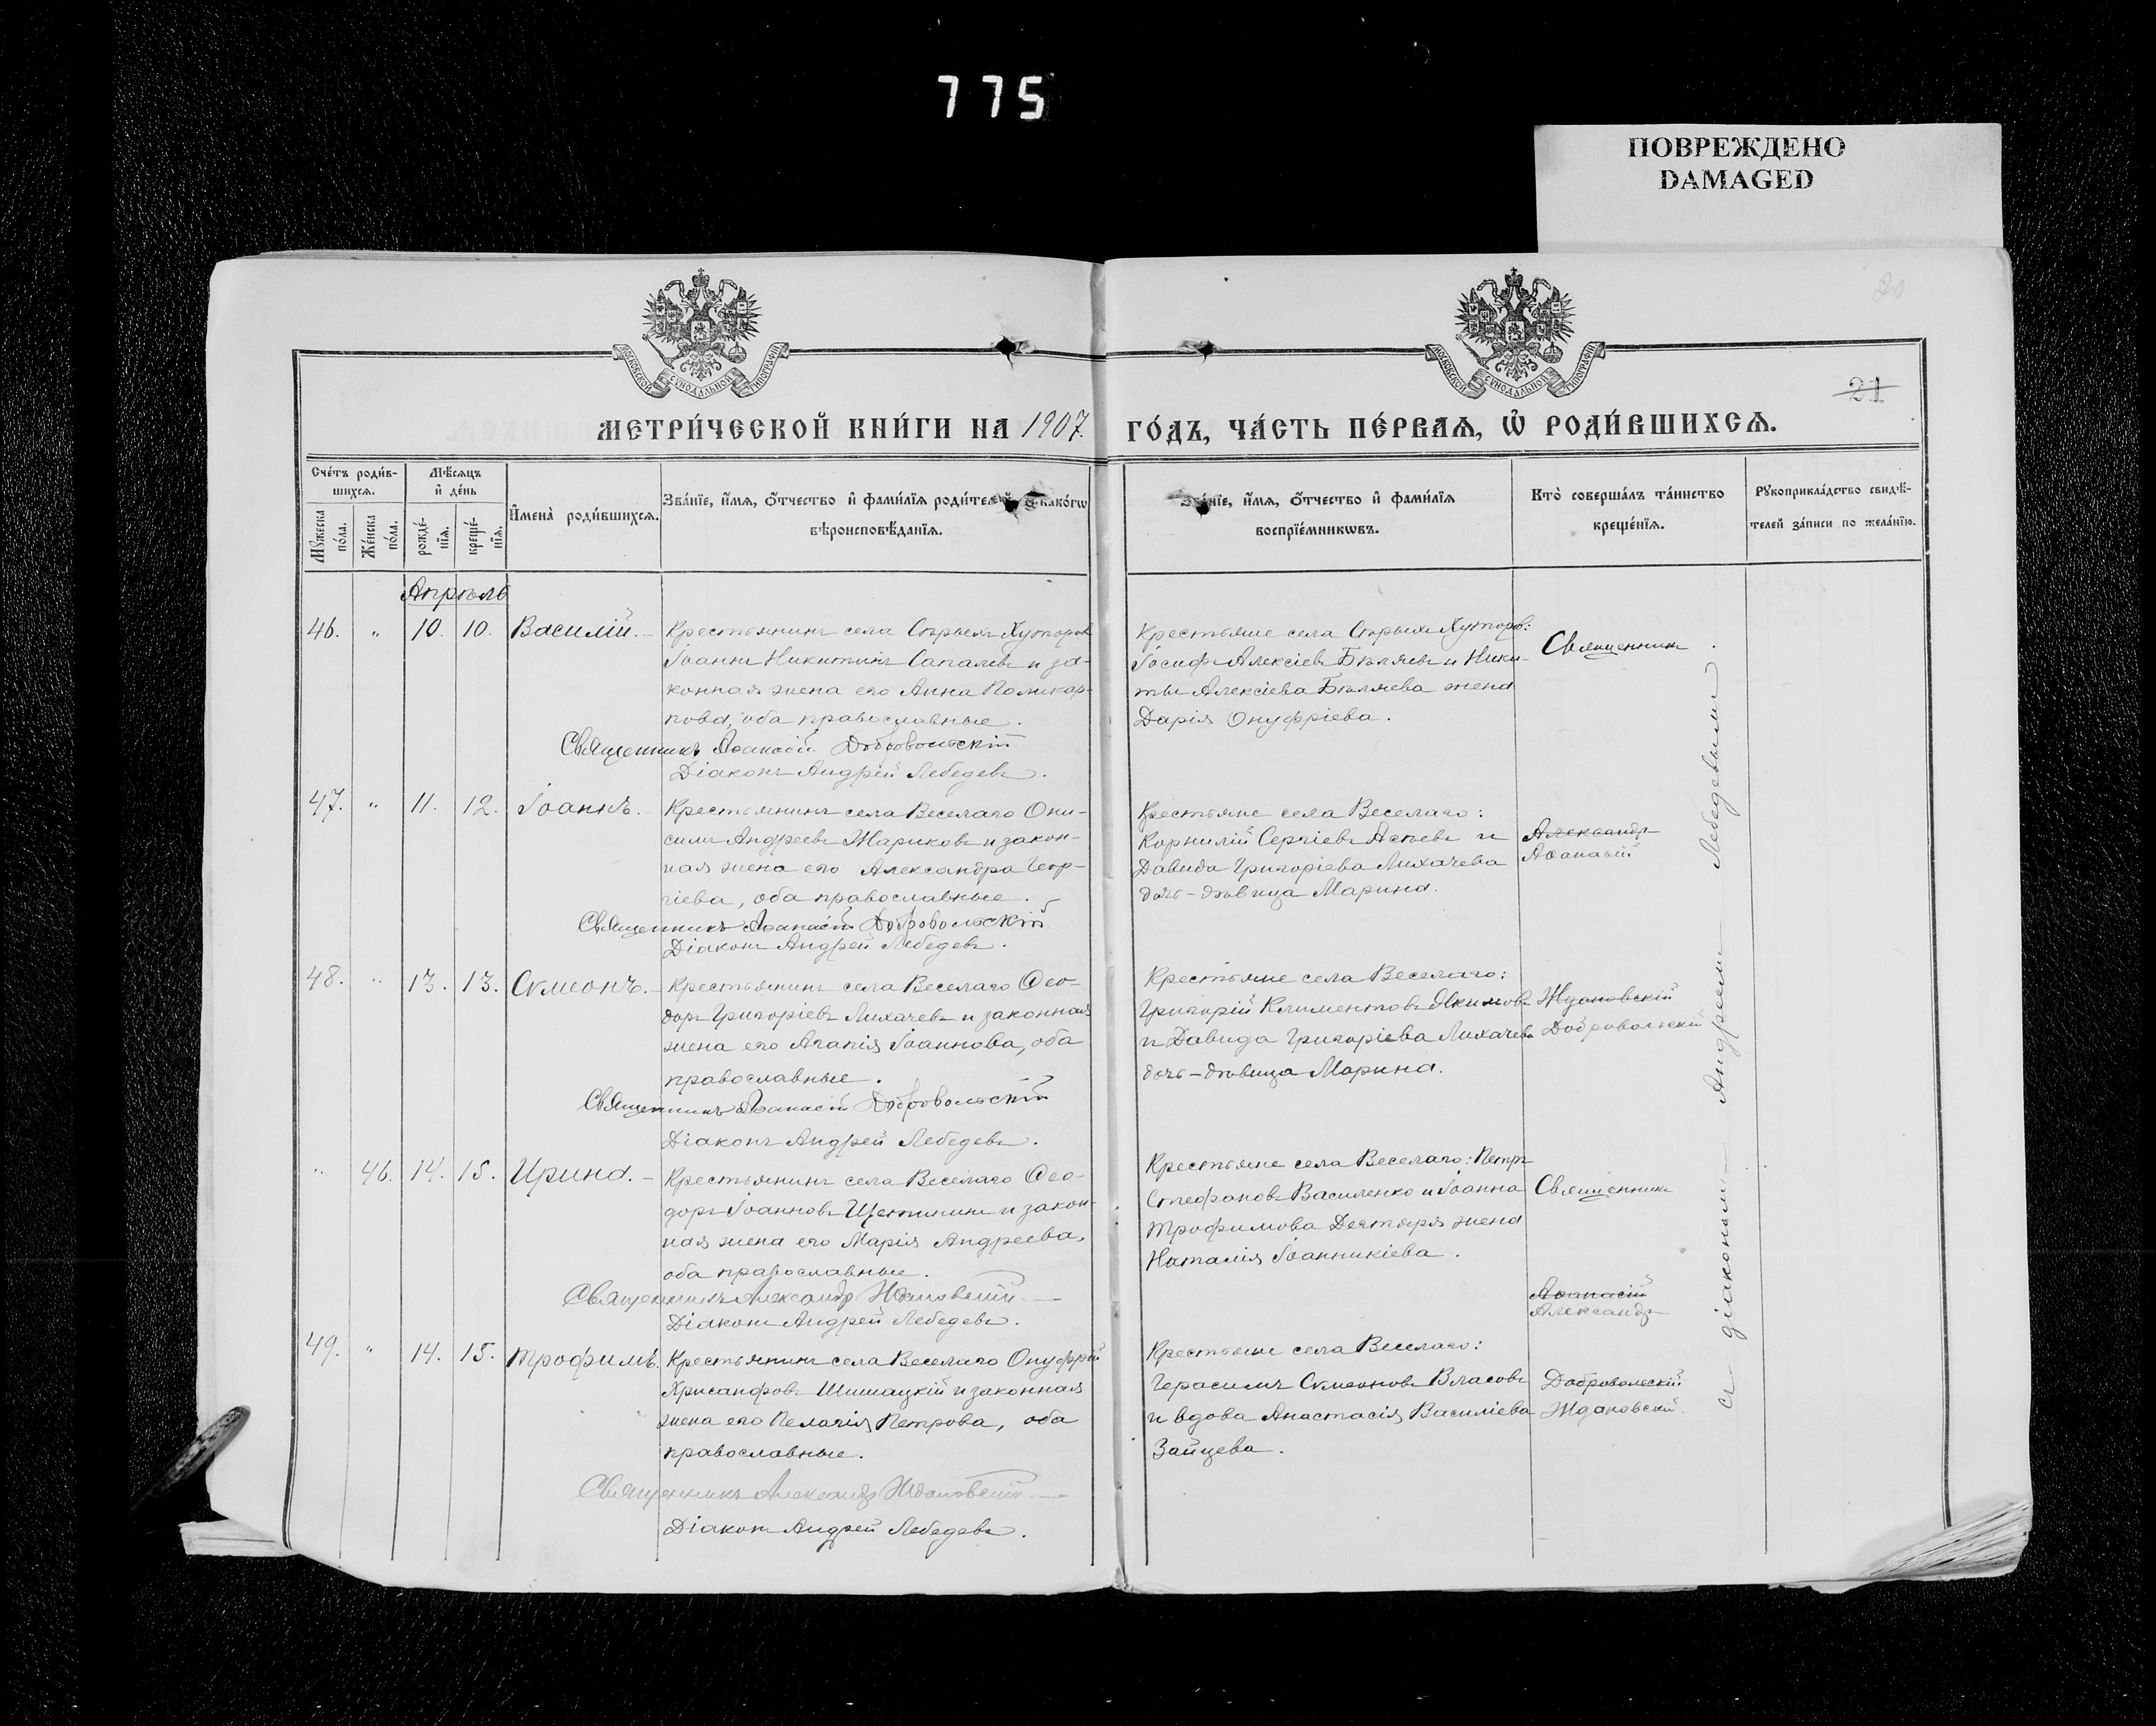 775
ПОВРЕЖДЕНО
DAMAGED
20
21
МОСКОВСКОЙ СУНОДАЛЬНОЙ ТИПОГРАФІИ
МОСКОВСКОЙ СУНОДАЛЬНОЙ ТИПОГРАФІИ
МЕТРИ́ЧЕСКОЙ КНИ́ГИ НА 1907.
ГО́ДЪ, ЧА́СТЬ ПЕ́РВАѦ, Ѡ҆ РОДИ́ВШИХСѦ.
Сче́тъ роди́в-
шихсѧ.
Мꙋ́жеска по́ла.
Же́нска по́ла.
Мѣ́сѧцъ
и҆ де́нь
рожде́-
нїѧ.
креще́-
нїѧ.
И҆мена̀ роди́вшихсѧ.
Зва́нїе, и҆́мѧ, ѻ҆́тчество и҆ фами́лїѧ роди́телей, како́гѡ
вѣроисповѣ́данїѧ.
Зва́нїе, и҆́мѧ, ѻ҆́тчество и҆ фами́лїѧ
воспрїе́мникѡвъ.
Кто̀ соверша́лъ та́инство
креще́нїѧ.
Рꙋкоприкла́дство свидѣ́-
телей за́писи по жела́нїю.
Апрѣль
46. " 10. 10. Василій. –
Крестьянинъ села Старыхъ Хуторов
Іоаннъ Никитинъ Сапалевъ и за-
конная жена его Анна Поликар-
пова, оба православные.
Священникъ Аѳанасій Добровольскій
Діаконъ Андрей Лебедевъ.
Крестьяне села Старыхъ Хуторов:
Іосифъ Алексіевъ Бѣляевъ и Ники-
ты Алексіева Бѣляева жена
Дарія Онуфріева.
Священникъ
47. " 11. 12. Іоаннъ. –
Крестьянинъ села Веселаго Они-
симъ Андреевъ Жариковъ и закон-
ная жена его Александра Геор-
гіева, оба православные.
Священникъ Аѳанасій Добровольскій
Діаконъ Андрей Лебедевъ.
Крестьяне села Веселаго:
Корнилій Сергіевъ Асѣевъ и
Давида Григоріева Лихачева
дочь – дѣвица Марина.
Александръ
Аѳанасій
48. " 13. 13. Сѵмеонъ. –
Крестьянинъ села Веселаго Ѳео-
доръ Григоріевъ Лихачевъ и законная
жена его Агапія Іоаннова, оба
православные.
Священникъ Аѳанасій Добровольскій
Діаконъ Андрей Лебедевъ.
Крестьяне села Веселаго:
Григорій Климентовъ Якимовъ
и Давида Григоріева Лихачева
дочь – дѣвица Марина.
Ждановскій
Добровольскій
" 46. 14. 15. Ирина. –
Крестьянинъ села Веселаго Ѳео-
доръ Іоанновъ Щетининъ и закон-
ная жена его Марія Андреева,
оба православные.
Священникъ Александръ Ждановскій
Діаконъ Андрей Лебедевъ.
Крестьяне села Веселаго: Петръ
Стефановъ Василенко и Іоанна
Трофимова Дегтяря жена
Наталія Іоанникіева.
Священникъ
Аѳанасій
Александръ
49. " 14. 15. Трофимъ.
Крестьянинъ села Веселаго Онуфрій
Хрисанфовъ Шишацкій и законная
жена его Пелагія Петрова, оба
православные.
Священникъ Александръ Ждановскій
Діаконъ Андрей Лебедевъ.
Крестьяне села Веселаго:
Герасимъ Сѵмеоновъ Власовъ
и вдова Анастасія Василіева
Зайцева.
Добровольскій
Ждановскій.
съ діакономъ Андреемъ Лебедевымъ.